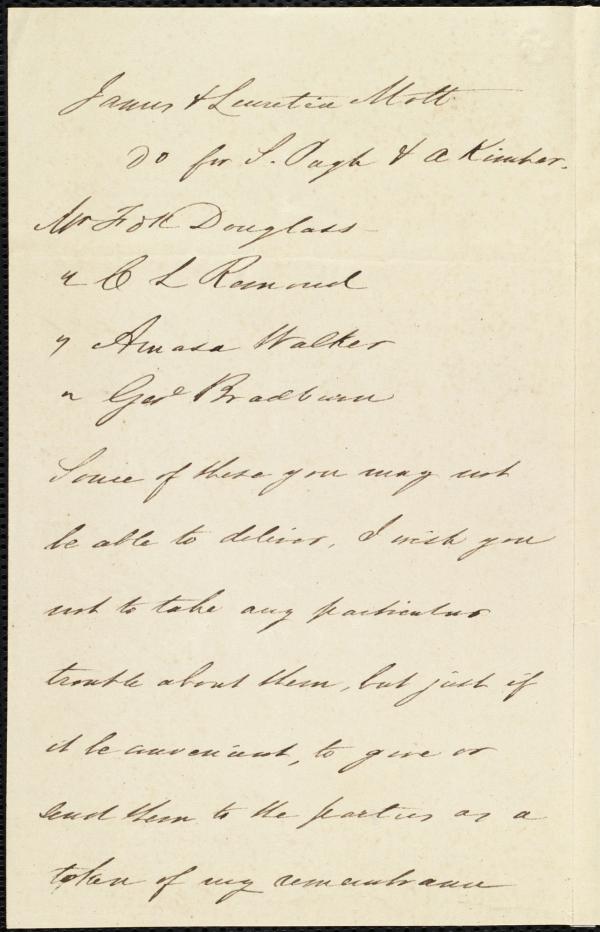 James & Lucretia Mott
Do for S. Pugh & A Kimber.
Mr Fdk Douglass
" C L Remond
" Amasa Walker
" Geo Bradburn
Some of these you may not
be able to deliver, I wish you
not to take any particular
trouble about them, but just if
it be convenient, to give or
send them to the parties as a
token of my remembrance